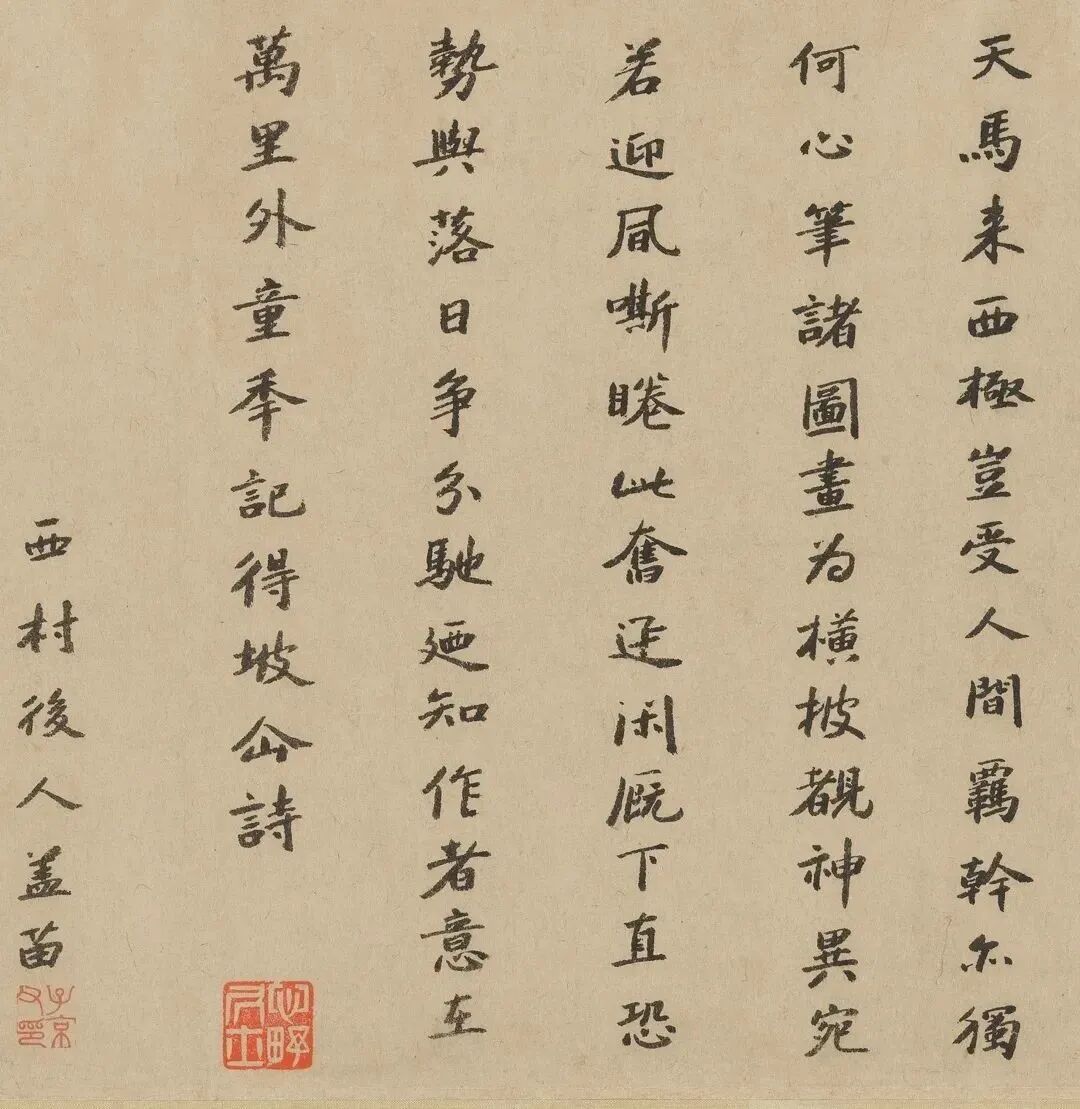 天馬来西極豈受人間羈幹尒獨
何心筆諸圖畫为橫披觀神異宛
若迎風嘶睠此奮迅闲厩下直恐
勢與落日争分馳廼知作者意在
萬里外童季記得坡仚詩
西村後人盖苗